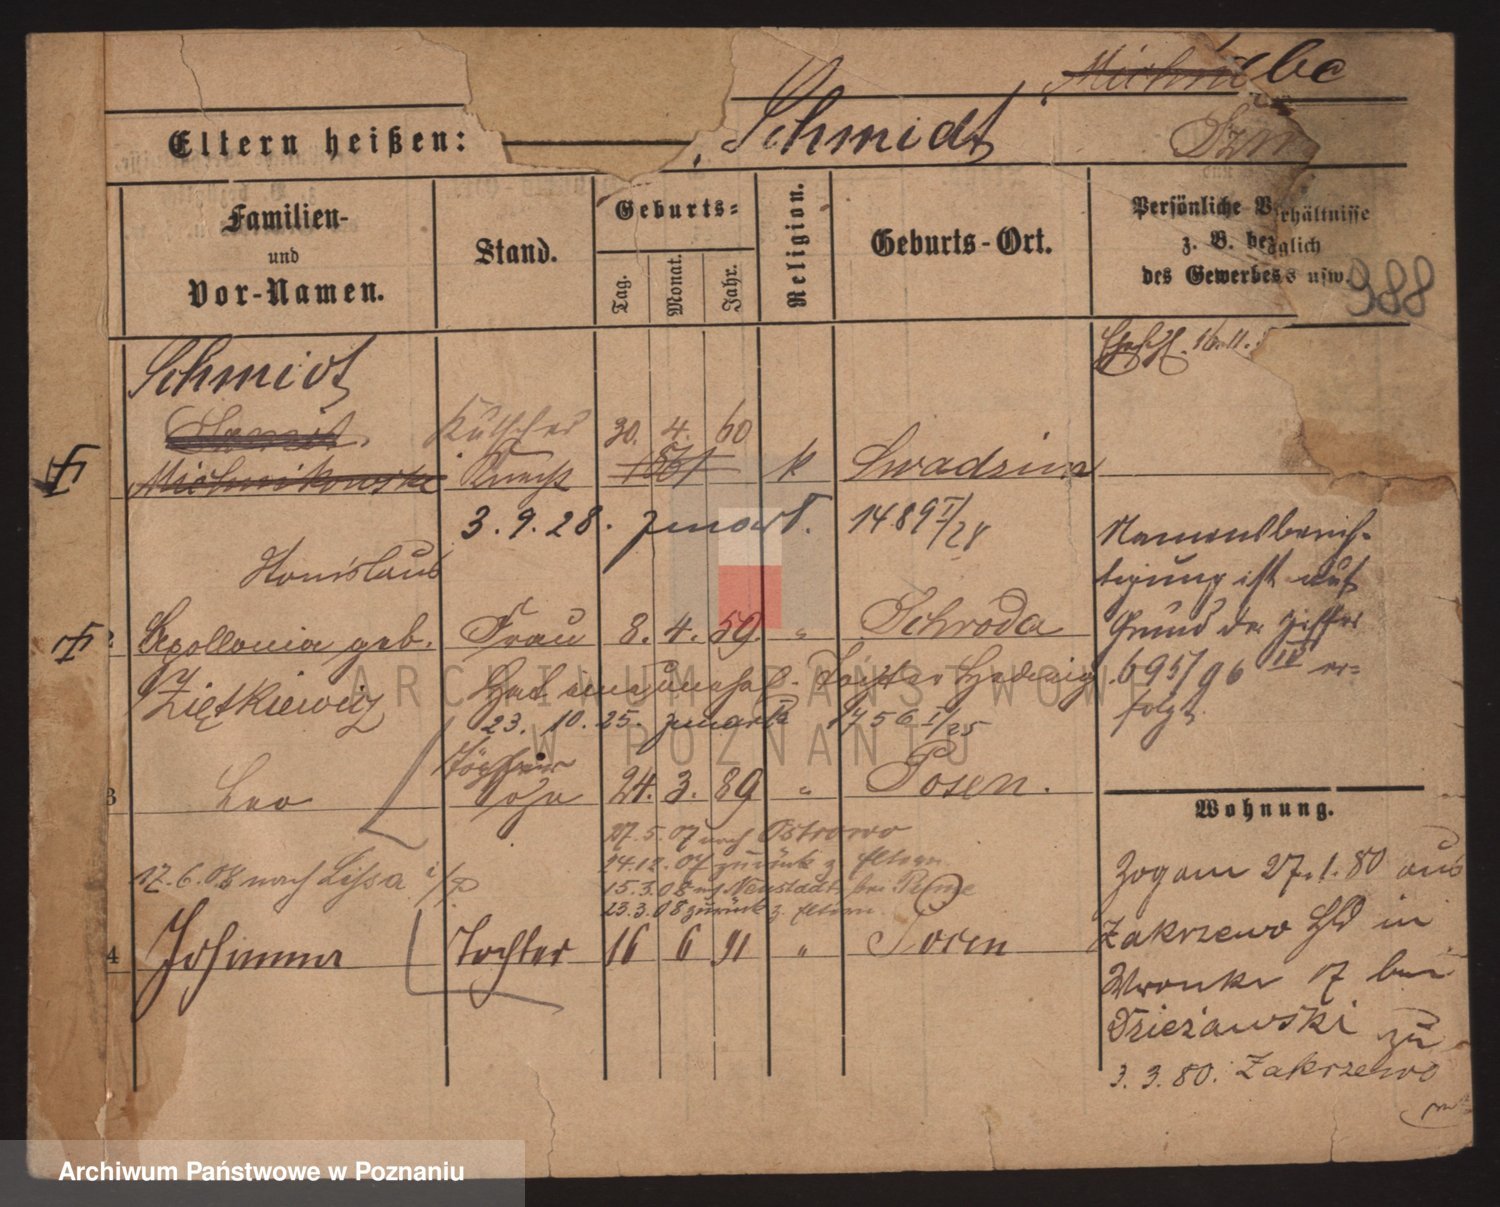 be
Eltern heißen:
Schmidt
Familien-
und
Vor-Namen.
Stand.
Geburts-
Tag.
Monat.
Jahr.
Religion.
Geburts-Ort.
Persönliche Verhältnisse
z. B. bezüglich
des Gewerbes usw.
988
16. 11.
Schmidt
Kutscher 30. 4. 60
Michnikowski Knecht 1861 k Swadzim
3. 9. 28. 1489 I/28
Stanislaus
Namensberich-
tigung ist auf
Grund der Ziffer
695/96 IV er-
folgt.
2 Apollonia geb. Frau 8. 4. 59. " Schroda
Ziętkiewicz
Tochter Hedwig
23. 10. 25. 1756 I/25
3 Leo 24. 3. 89 " Posen.
Wohnung.
27. 5. 07 nach Ostrowo
14.12.07 zurück z. Eltern
17. 6. 08 nach Lissa i/P
15.3.08 Neustadt bei Pinne
23.3.08 zurück z. Eltern.
4 Johanna Tochter 16 6 91 " Posen
Zog am 27. 1. 80 aus
Zakrzewo in
Wronke 17 bei
Dzieżawski zu
3. 3. 80. Zakrzewo
ARCHIWUM PAŃSTWOWE
W POZNANIU
Archiwum Państwowe w Poznaniu